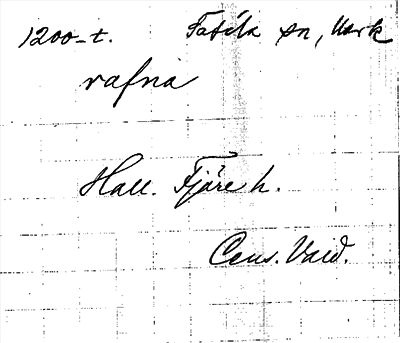 1200-t. Fatila sn, Mark
rafna
Hall. Fjäre h.
Cens. Vard.